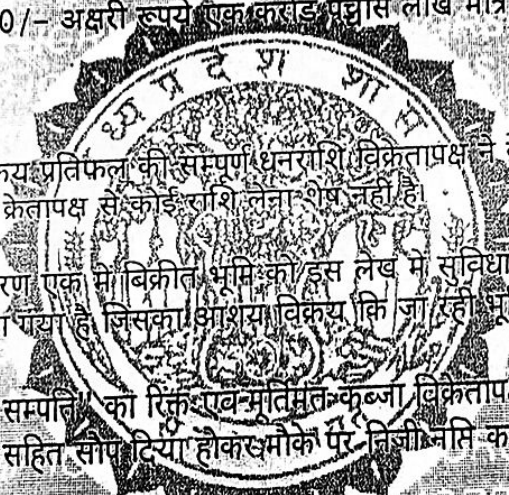 0/- अक्षरी रूपये एक करोड पच्चास लाख मात्र
ध्य प्रदेश शास
कय प्रतिफल की सम्पूर्ण धनराशि विक्रेतापक्ष ने
क्रेतापक्ष से कोई राशि लेना शेष नहीं है।
रण एक में बिक्रीत भूमि को इस लेख में सुविधा
ा गया है जिसका आशय विक्रय कि जा रही भू
सम्पति" का रिक्त एवं मूर्तिमंत कब्जा विक्रेताप
सहित सौप दिया होकर मौके पर निजी नप्ति क